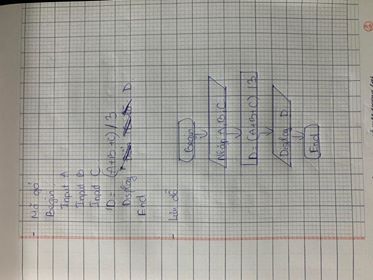 - Mã giả
Begin
Input A
Input B
Input C
D = (A+B+C) / 3
Display D
End
- Lưu đồ
Begin
Nhập A, B, C
D = (A+B+C) / 3
Display D
End